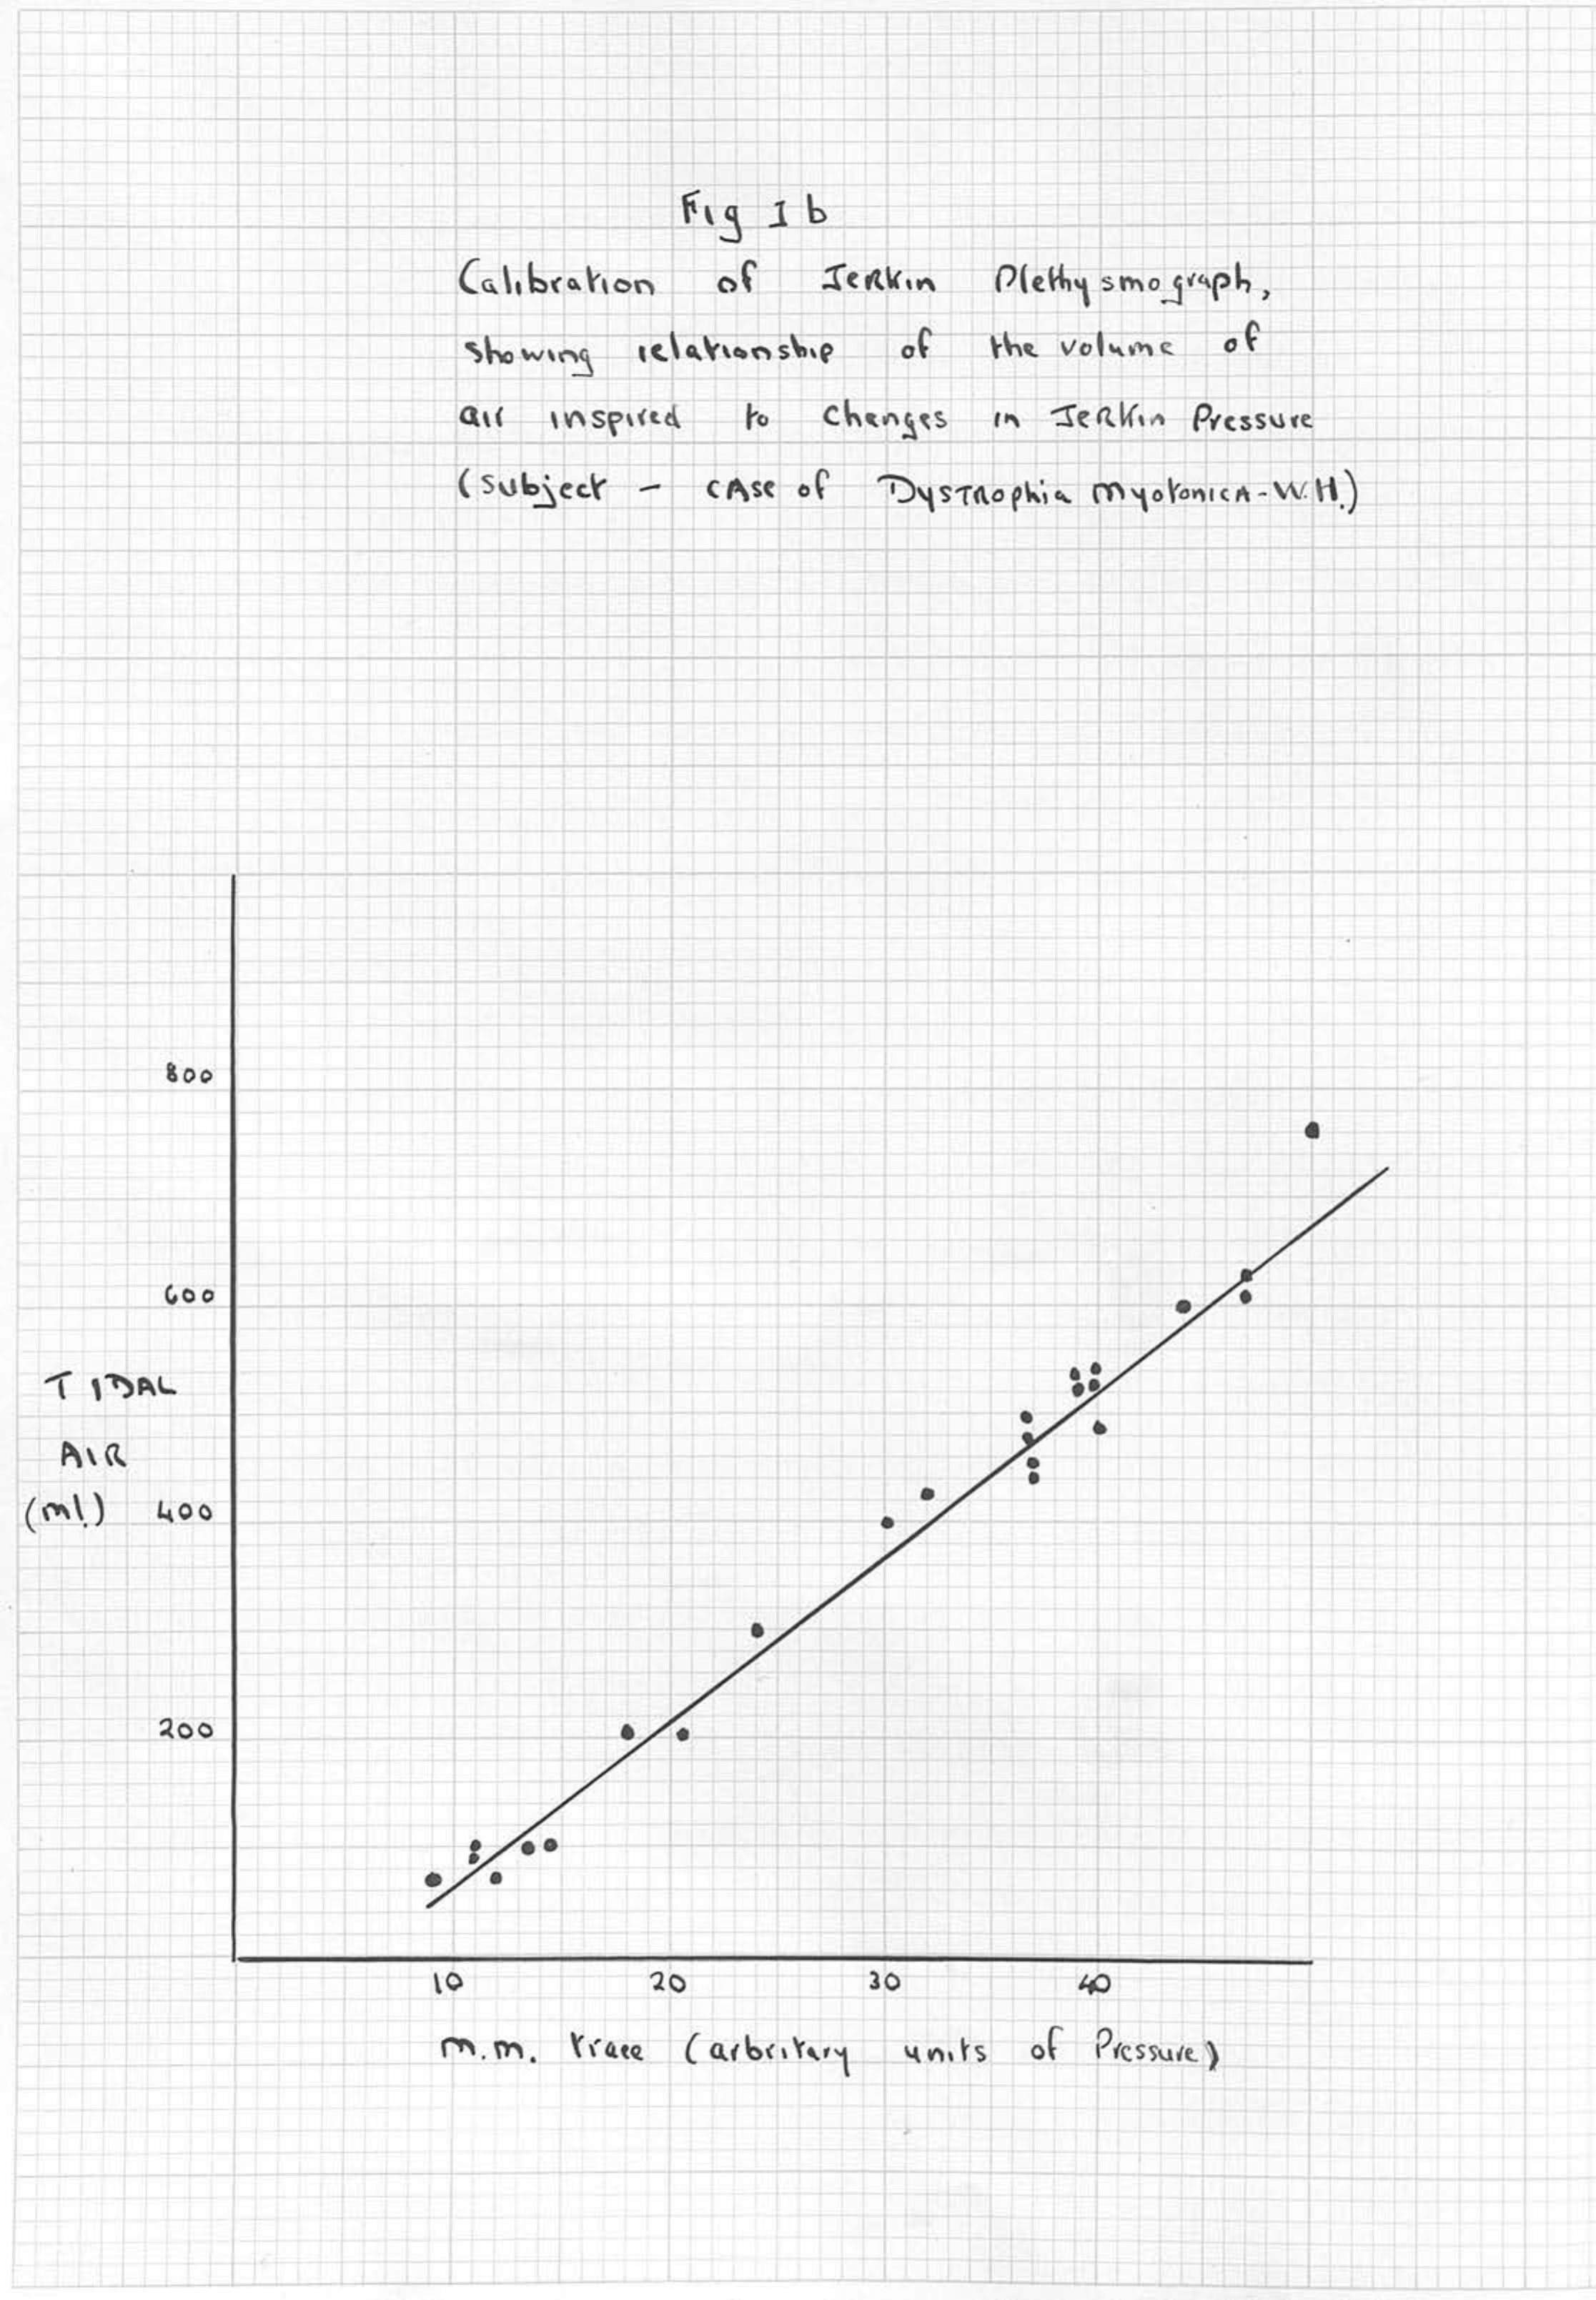 Fig I b
Calibration of Jerkin Plethysmograph,
showing relationship of the volume of
air inspired to changes in Jerkin Pressure
(subject - case of Dystrophia Myotonica - W.H.)
800
600
TIDAL
AIR
(ml.) 400
200
10 20 30 40
m.m. trace (arbritary units of Pressure)